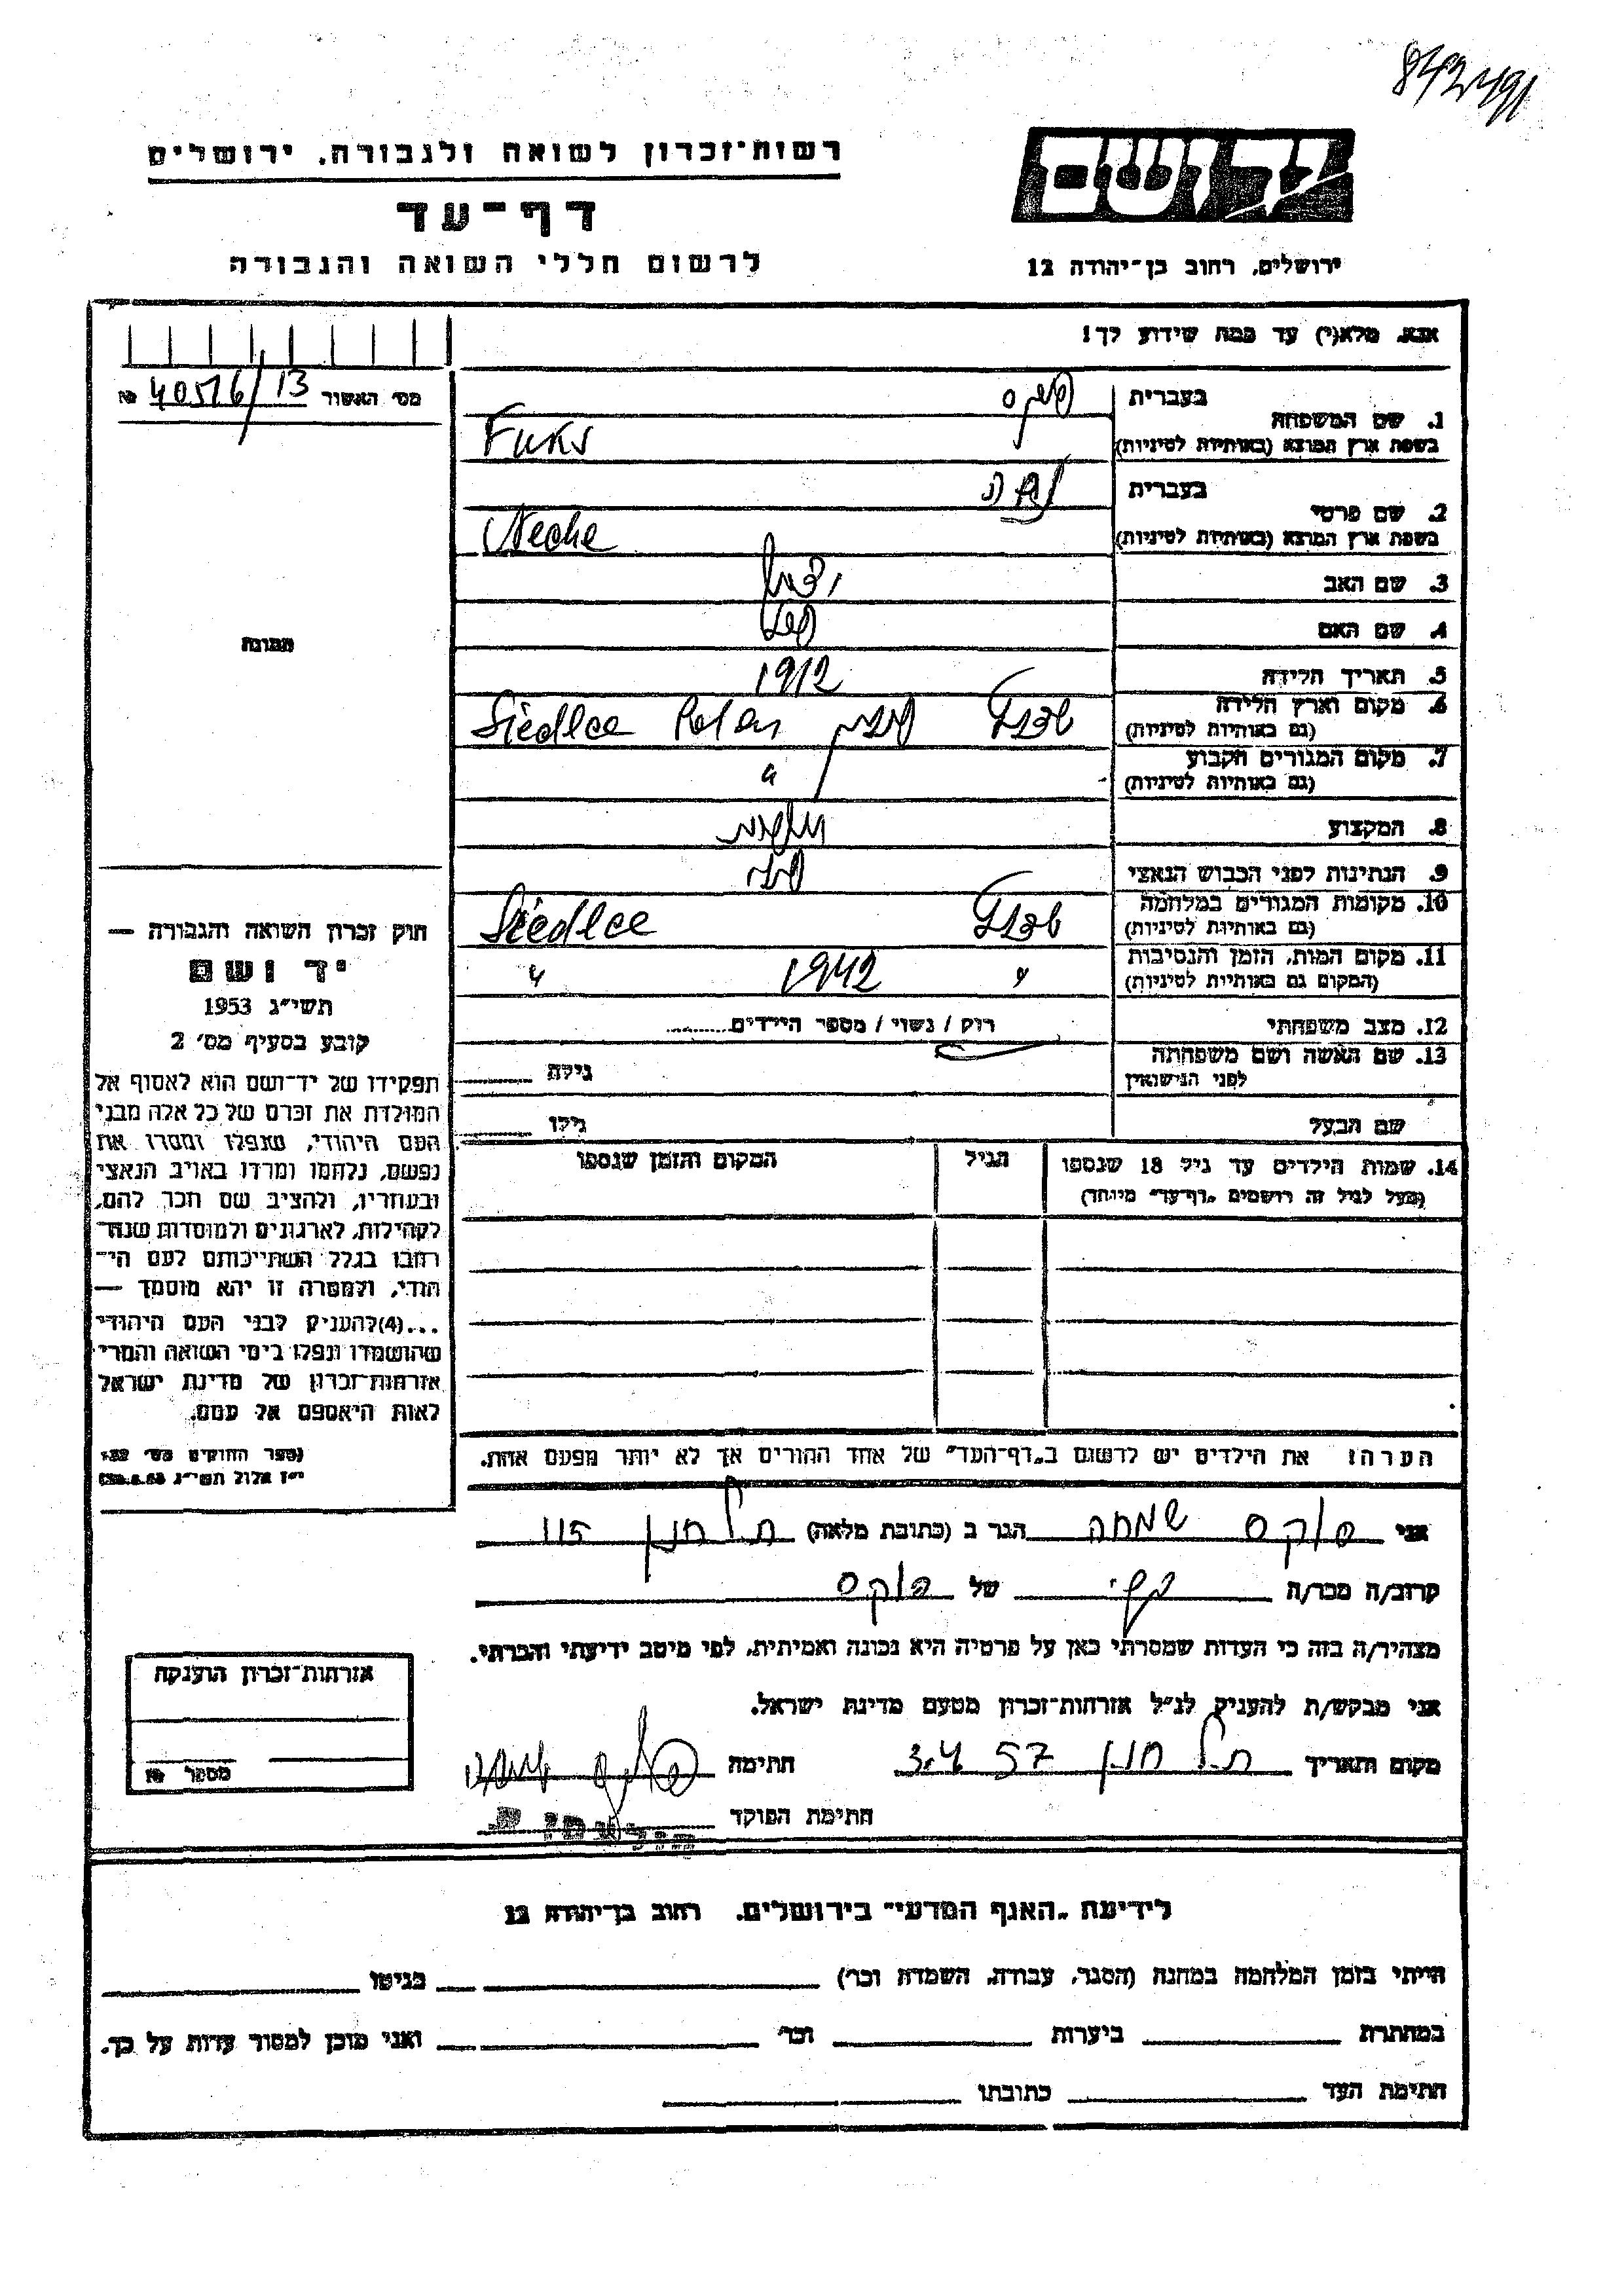 רשות־זכרון לשואה ולגבורה, ירושלים
דף־עד
לרשום חללי השואה והגבורה
יד ושם
ירושלים, רחוב בן־יהודה 12
אנא, מלא(י) עד כמה שידוע לך!
מס׳ האשור 40516/13 №
1. שם המשפחה
בעברית
בשפת ארץ המוצא (באותיות לטיניות) Fuks
2. שם פרטי
בעברית
בשפת ארץ המוצא (באותיות לטיניות) Neche
3. שם האב
4. שם האם
5. תאריך הלידה 1912
6. מקום וארץ הלידה
(גם באותיות לטיניות) Siedlce Polen
7. מקום המגורים הקבוע
(גם באותיות לטיניות) "
8. המקצוע
9. הנתינות לפני הכבוש הנאצי
10. מקומות המגורים במלחמה
(גם באותיות לטיניות) Siedlce
11. מקום המות, הזמן והנסיבות
(המקום גם באותיות לטיניות) " 1942 "
12. מצב משפחתי רוק / נשוי / מספר הילדים
13. שם האשה ושם משפחתה
לפני הנישואין גילה
שם הבעל גילו
14. שמות הילדים עד גיל 18 שנספו
(מעל לגיל זה רושמים „דף־עד" מיוחד)
הגיל
המקום והזמן שנספו
הערה: את הילדים יש לרשום ב„דף־העד" של אחד ההורים אך לא יותר מפעם אחת.
תמונה
חוק זכרון השואה והגבורה —
יד ושם
תשי״ג 1953
קובע בסעיף מס׳ 2
תפקידו של יד־ושם הוא לאסוף אל
המולדת את זכרם של כל אלה מבני
העם היהודי, שנפלו ומסרו את
נפשם, נלחמו ומרדו באויב הנאצי
ובעוזריו, ולהציב שם וזכר להם,
לקהילות, לארגונים ולמוסדות שנח־
רבו בגלל השתייכותם לעם הי־
הודי, ולמטרה זו יהא מוסמך —
...(4)להעניק לבני העם היהודי
שהושמדו ונפלו בימי השואה והמרי
אזרחות־זכרון של מדינת ישראל
לאות היאספם אל עמם.
(ספר החוקים מס׳ 132
י״ז אלול תשי״ג
אני פוקס שמחה הגר ב (כתובת מלאה) תל חנן 115
קרוב/ה מכר/ה של פוקס
מצהיר/ה בזה כי העדות שמסרתי כאן על פרטיה היא נכונה ואמיתית, לפי מיטב ידיעתי והכרתי.
אני מבקש/ת להעניק לנ״ל אזרחות־זכרון מטעם מדינת ישראל.
מקום ותאריך תל חנן 3.4 57 חתימה
חתימת הפוקד
אזרחות־זכרון הוענקה
מספר №
לידיעת „האגף המדעי" בירושלים, רחוב בן־יהודה 12
הייתי בזמן המלחמה במחנה (הסגר, עבודה, השמדה וכר׳) בגיטו
במחתרת ביערות וכר׳ ואני מוכן למסור עדות על כך.
חתימת העד כתובתו